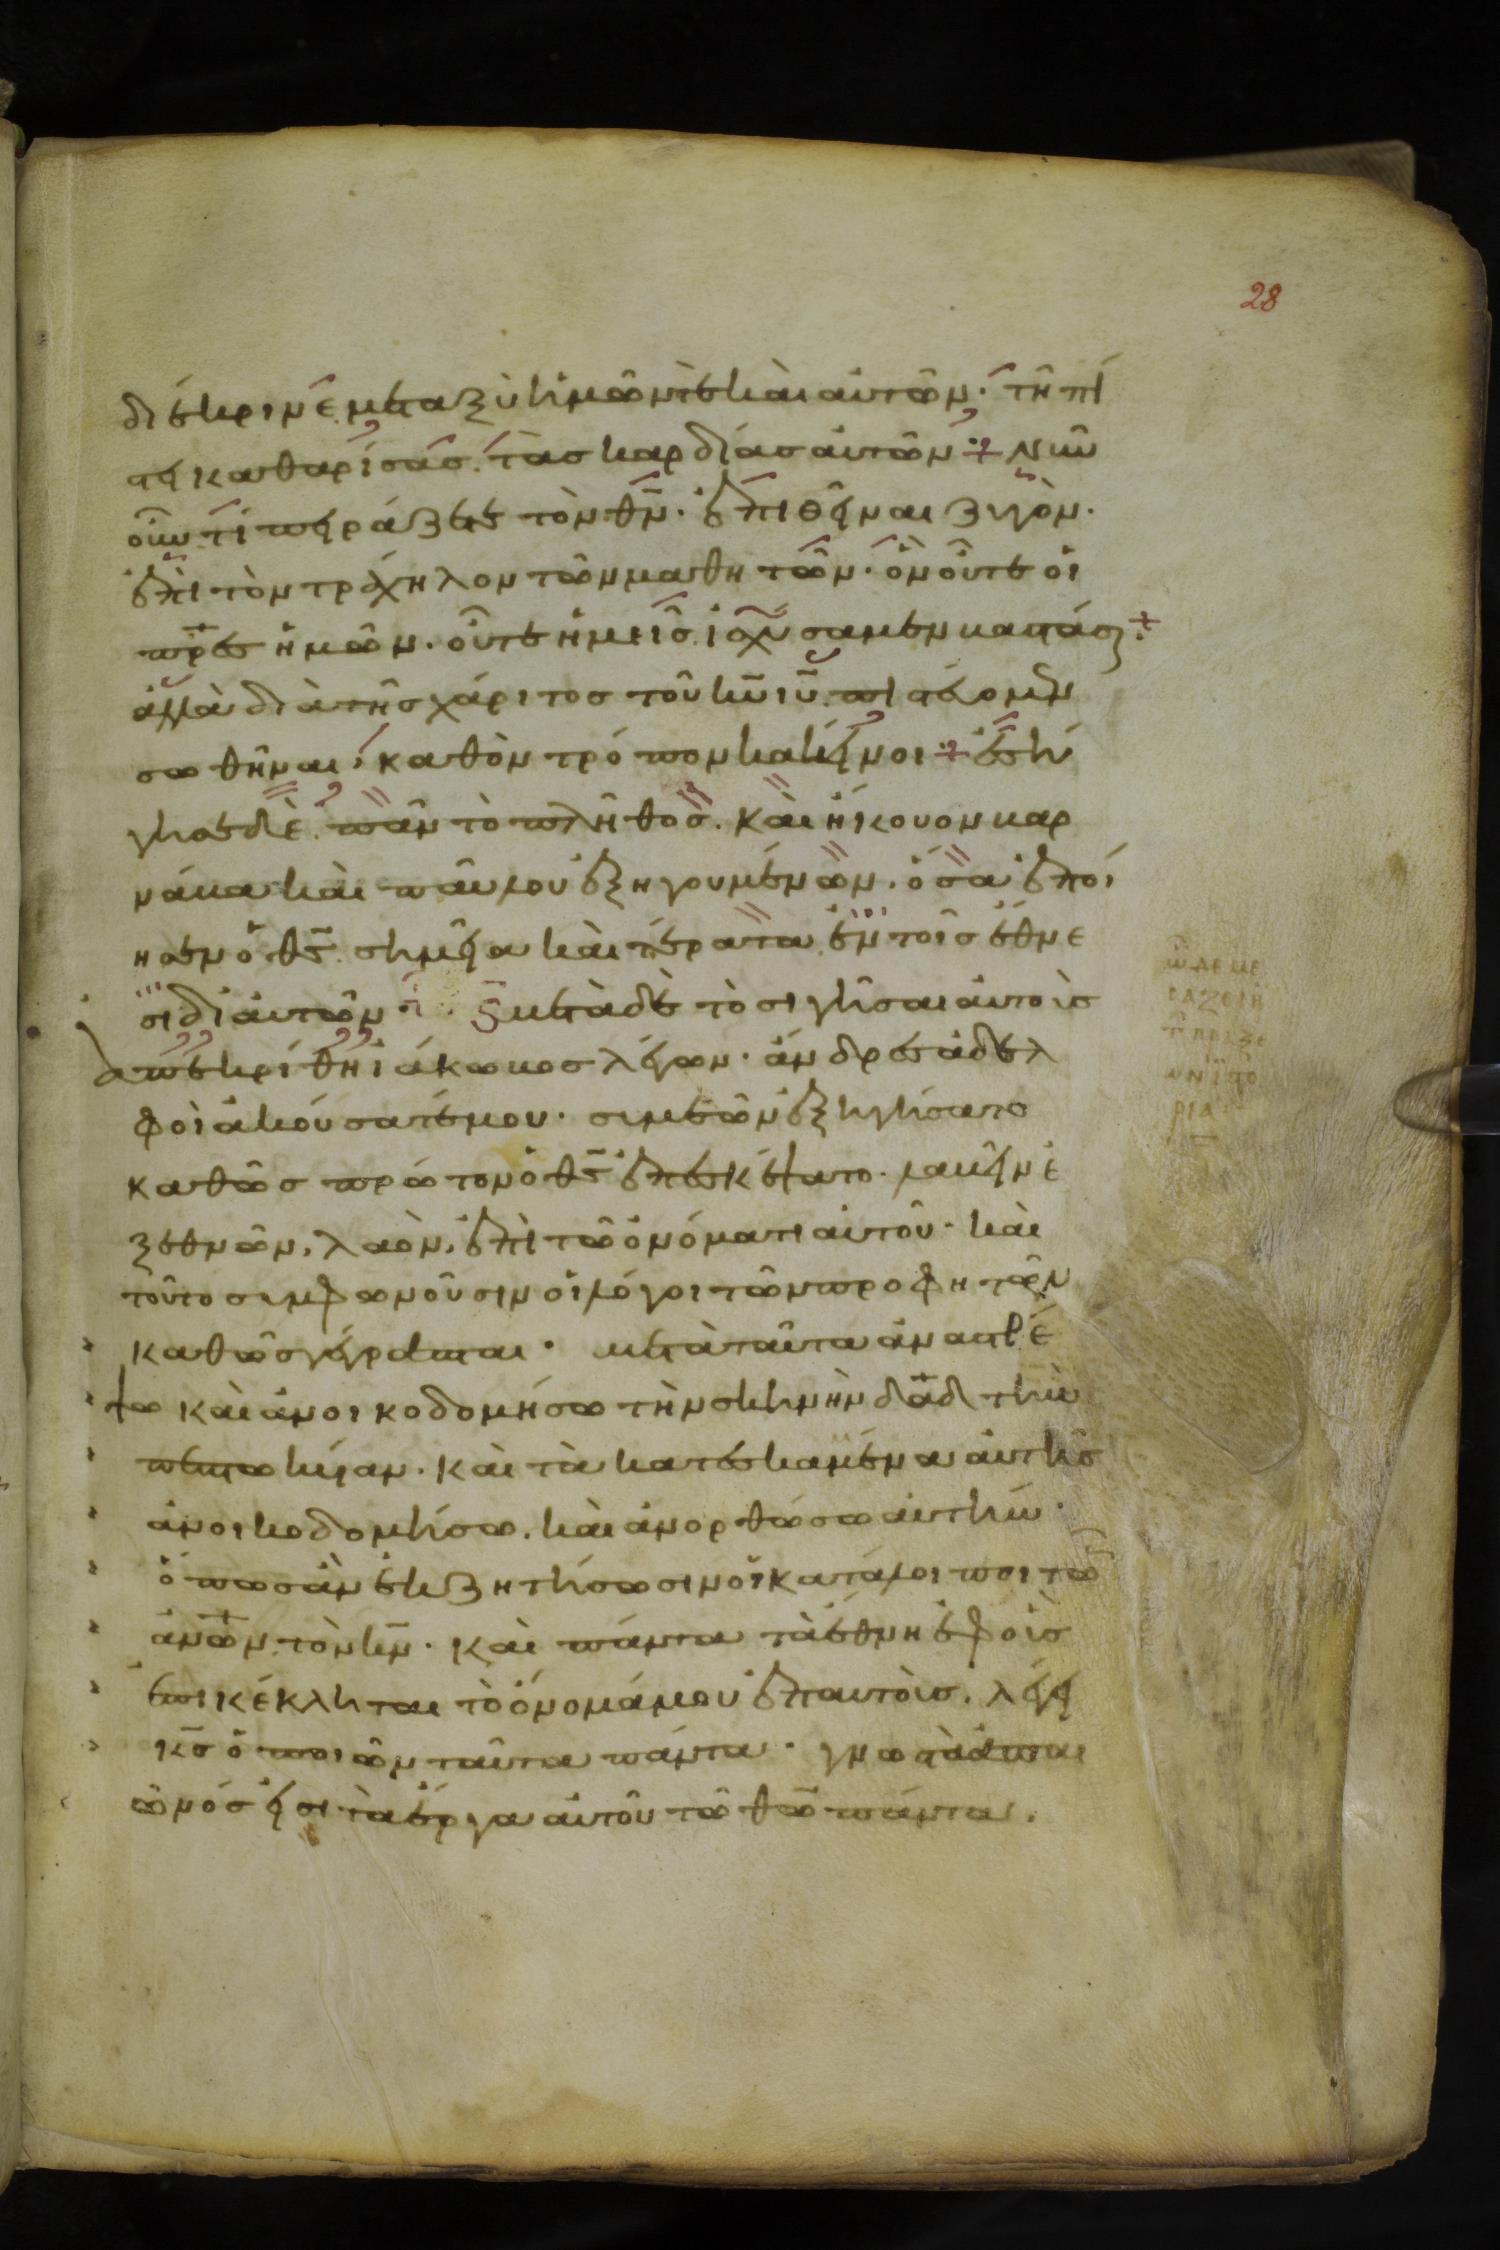 28
διέκρινε μεταξὺ ἡμῶν τε καὶ αὐτῶν· τῇ πί
στει καθαρίσας. τὰς καρδίας αὐτῶν· νῦν
οὖν τί πειράζετε τὸν θν̄· ἐπιθεῖναι ζυγὸν·
ἐπὶ τὸν τράχηλον τῶν μαθητῶν· ὃν οὔτε οἱ
πρ̄ες ἡμῶν· οὔτε ἡμεῖς ἰσχύσαμεν βαστάσαι·
ἀλλὰ διὰ τῆς χάριτος τοῦ κῡ ιῡ πιστεύομεν
σωθῆναι, καθ ὃν τρόπον κακεῖνοι· ἐσί
γησε δὲ. πᾶν τὸ πλῆθος. καὶ ἤκουον βαρ
νάβα καὶ παύλου ἐξηγουμένων. ὅσα ἐποί
ησεν ὁ θς̄ σημεῖα καὶ τέρατα ἐν τοῖς ἔθνε
σι δι αὐτῶν· μετὰ δὲ τὸ σιγῆσαι αὐτοὺς
ἀπεκρίθη ἰάκωβος λέγων· ἄνδρες ἀδελ
φοὶ ἀκούσατέ μου· συμεὼν ἐξηγήσατο
καθὼς πρῶτον ὁ θς̄ ἐπεσκέψατο· λαβεῖν ἐ
ξ ἐθνῶν, λαὸν, ἐπὶ τῶ ὀνόματι αὐτοῦ· καὶ
τούτο συμφωνοῦσιν οἱ λόγοι τῶν προφητῶν
καθὼς γέγραπται· μετὰ ταῦτα ἀναστρέ
ψω καὶ ἀνοικοδομήσω τὴν σκηνὴν δᾱδ τὴν
πεπτωκυίαν· καὶ τὰ κατεσκαμένα αὐτῆς
ἀνοικοδομήσω, καὶ ἀνορθώσω αὐτήν·
ὅπως ἂν ἐκζητήσωσιν οἱ κατάλοιποι τῶν
ἀνω̄ν τὸν κν̄· καὶ πάντα τὰ ἔθνη ἐφ οὓς
ἐπικέκληται τὸ ὄνομά μου ἐπ αυτοὺς, λέγει
κς̄ ὁ ποιῶν ταῦτα πάντα· γνωστὰ ἀπ αι
ῶνός εἰσι τὰ ἔργα αὐτοῦ τῶ θω̄ πάντα.